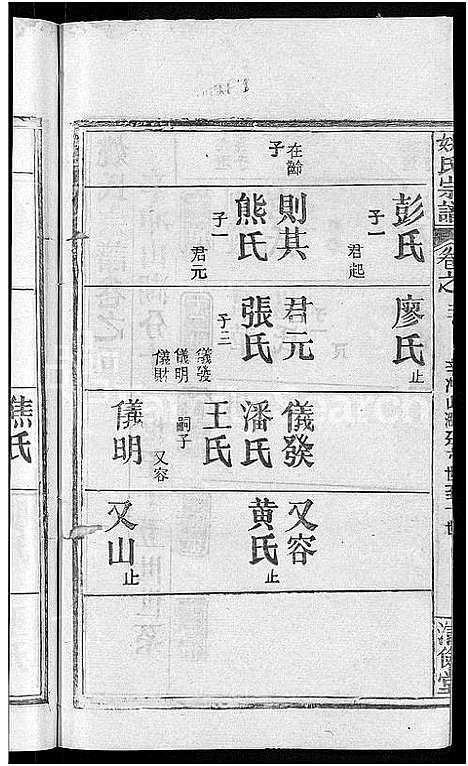 姚氏宗譜
卷之
在齡
子
彭氏
子一
君起
則其
熊氏
子一
君元
廖氏止
君元
張氏
子三
儀發
儀明
儀財
儀發
潘氏
王氏
嗣子
又容
儀明
又容
黃氏止
又山止
譙氏